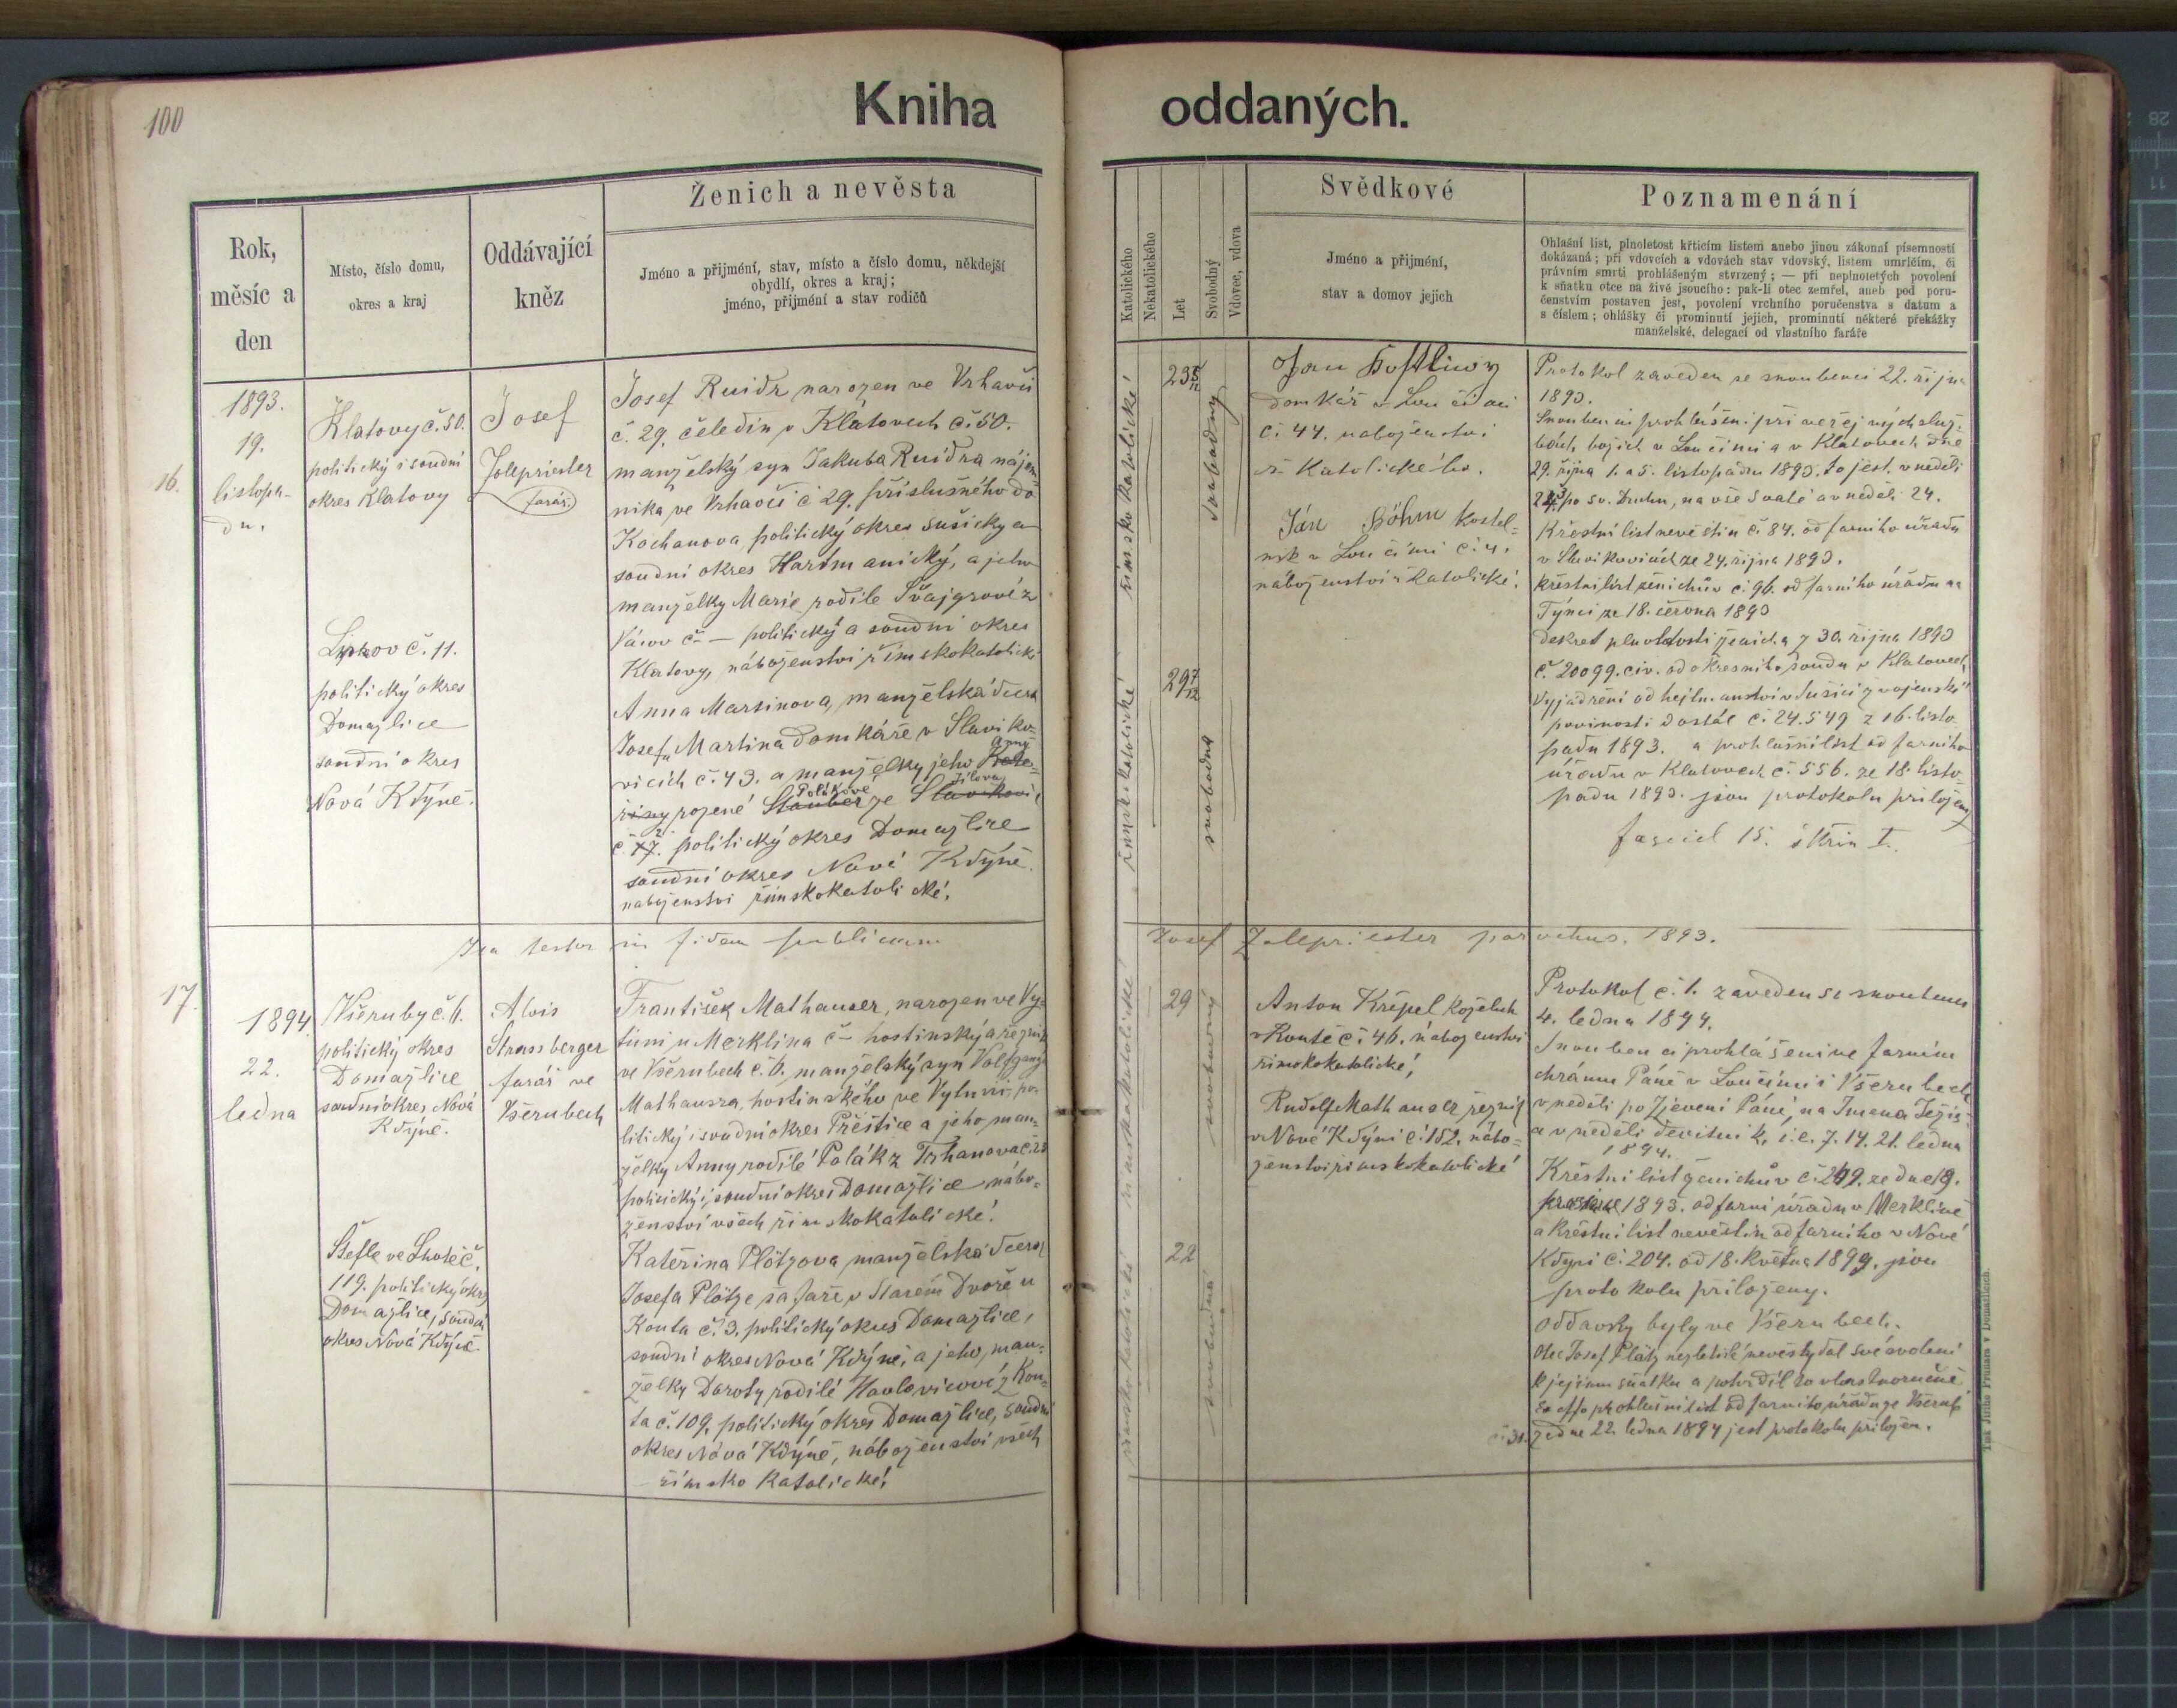 100
Kniha
Rok,
měsíc a
den
Místo, číslo domu,
okres a kraj
Oddávající
kněz
Ženich a nevěsta
Jméno a přijmení, stav, místo a číslo domu, někdejší
obydlí, okres a kraj;
jméno, přijmení a stav rodičů
16.
1893.
19.
listopa-
du.
Klatovy č. 50.
politický i soudní
okres Klatovy
Lipkov č. 11.
politický okres
Domažlice
soudní okres
Nová Kdýně.
Josef
Zolepriester
farář.
Josef Ruidr narozen ve Vrhavči
č. 29. čeledín v Klatovech č. 50.
manželský syn Jakuba Ruidra nájem-
níka ve Vrhavči č 29. příslušného do
Kochanova, politický okres sušický a
soudní okres Hartmanický, a jeho
manželky Marie rodilé Švajgrové z
č — politický a soudní okres
Klatovy, náboženství římskokatolické
Anna Martinova, manželská dcera
Josefa Martina domkáře v Slaviko-
vicích č. 43. a manželky jeho Anny
rozené Polákové ze
č. 2. politický okres Domažlice
soudní okres Nová Kdýně.
náboženství římskokatolické.
Ita testor in fidem publicam
17.
1894
22.
ledna
Všeruby č. 6.
politický okres
Domažlice
soudní okres Nová
Kdýně.
Štefle ve Lhotě č.
119. politický okres
Domažlice, soudní
okres Nová Kdýně.
Alois
Strassberger
farář ve
Všerubech
František Mathauser, narozen ve Vy-
túni u Merklína č — hostinský a řezník
ve Všerubech č. 6. manželský syn Volfganga
Mathausra, hostinského ve Vytuni, po-
litický i soudní okres Přeštice a jeho man-
želky Anny rodilé Polák z Trhanova č. 23
politický i soudní okres Domažlice nábo-
ženství všech římskokatolické.
Kateřina Plötzova manželská dcera
Josefa Plötze šafáře v Starém Dvoře u
Kouta č. 3. politický okres Domažlice,
soudní okres Nová Kdýně, a jeho man-
želky Doroty rodilé Havlovicové z Kou-
ta č. 109. politický okres Domažlice, soudní
okres Nová Kdýně, náboženství všech
římsko katolické.
oddaných.
Katolického
Nekatolického
Let
Svobodný
Vdovec, vdova
Svědkové
Jméno a přijmení,
stav a domov jejich
Poznamenání
Ohlašní list, plnoletost křticím listem anebo jinou zákonní písemností
dokázaná; při vdovcích a vdovách stav vdovský, listem umrlčím, či
právním smrti prohlášeným stvrzený; — při neplnoletých povolení
k sňatku otce na živě jsoucího: pak-li otec zemřel, aneb pod poru-
čenstvím postaven jest, povolení vrchního poručenstva s datum a
s číslem; ohlášky či prominutí jejich, prominutí některé překážky
manželské, delegací od vlastního faráře
římsko katolické
23 5/12
svobodný
římskokatolické
29 7/12
svobodná
Jan
domkář v Loučimi
č. 44. náboženství
ř. Katolického.
Ján Böhm kostel-
ník v Loučimi č. 4.
náboženství ř. katolické.
Protokol zaveden se snoubenci 22. října
1893.
Snoubenci prohlášeni při veřejných služ-
bách božích v Loučimi a v Klatovech dne
29. října 1. a 5. listopadu 1893. to jest. v neděli
23 po sv. Duchu, na vše Svaté a v neděli 24.
Křestní list nevěstin č. 84. od farního úřadu
v Slavikovicích ze 24. října 1893.
křestní list ženichův č. 96. od farního úřadu na
Týnci ze 18. června 1893
dekret plnoletosti ženicha z 30. října 1893
č. 20099. civ. od okresního soudu v Klatovech,
Vyjádření od hejtmanství v Sušici z vojenské
povinosti dostál č. 24.549 z 16. listo-
padu 1893. a prohlášní list od farního
úřadu v Klatovech č. 556. ze 18. listo-
padu 1893. jsou protokolu přiloženy
fascicl 15. skřín I.
Josef Zolepriester parochus. 1893.
římskokatolické
29
svobodný
římskokatolické
22
svobodná
Anton Křepel koželuh
v Koutě č. 46. náboženství
římskokatolické,
Rudolf Mathauser řezník
v Nové Kdýni č. 152. nábo-
ženství římskokatolické
Protokol č. 1. zaveden se snoubenci
4. ledna 1894.
Snoubenci prohlášeni ve farním
chrámu Páně v Loučimi i Všerubech
v neděli po Zjevení Páně, na Jmena Ježíš
a v neděli devítník, i. e. 7. 14. 21. ledna
1894.
Křestní list ženichův č. 249. ze dne 19.
prosince 1893. od farní úřadu v Merklíně
a křestní list nevěstin od farního v Nové
Kdyni č. 204. od 18. května 1899. jsou
protokolu přiloženy.
Oddavky byly ve Všerubech.
Otec Josef Plötz nezletilé nevěsty dal své svolení
k jejímu sňatku a potvrdil to vlastnoručně
prohlášní list od farního úřadu ze Všerub
č. 31. ze dne 22. ledna 1894 jest protokolu přiložen.
Tisk Jiřího Prunara v Domažlicích.